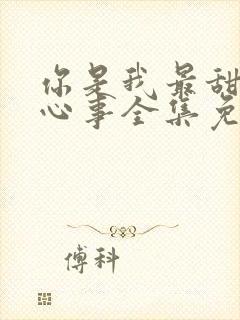 你是我最甜
心事全集免
傅科